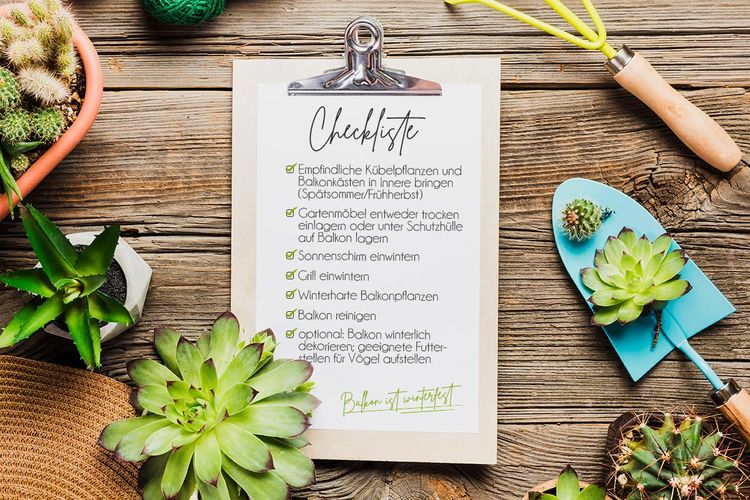 Checkliste
Empfindliche Kübelpflanzen und
Balkonkästen in Innere bringen
(Spätsommer/Frühherbst)
Gartenmöbel entweder trocken
einlagern oder unter Schutzhülle
auf Balkon lagern
Sonnenschirm einwintern
Grill einwintern
Winterharte Balkonpflanzen
Balkon reinigen
optional: Balkon winterlich
dekorieren; geeignete Futter-
stellen für Vögel aufstellen
Balkon ist winterfest